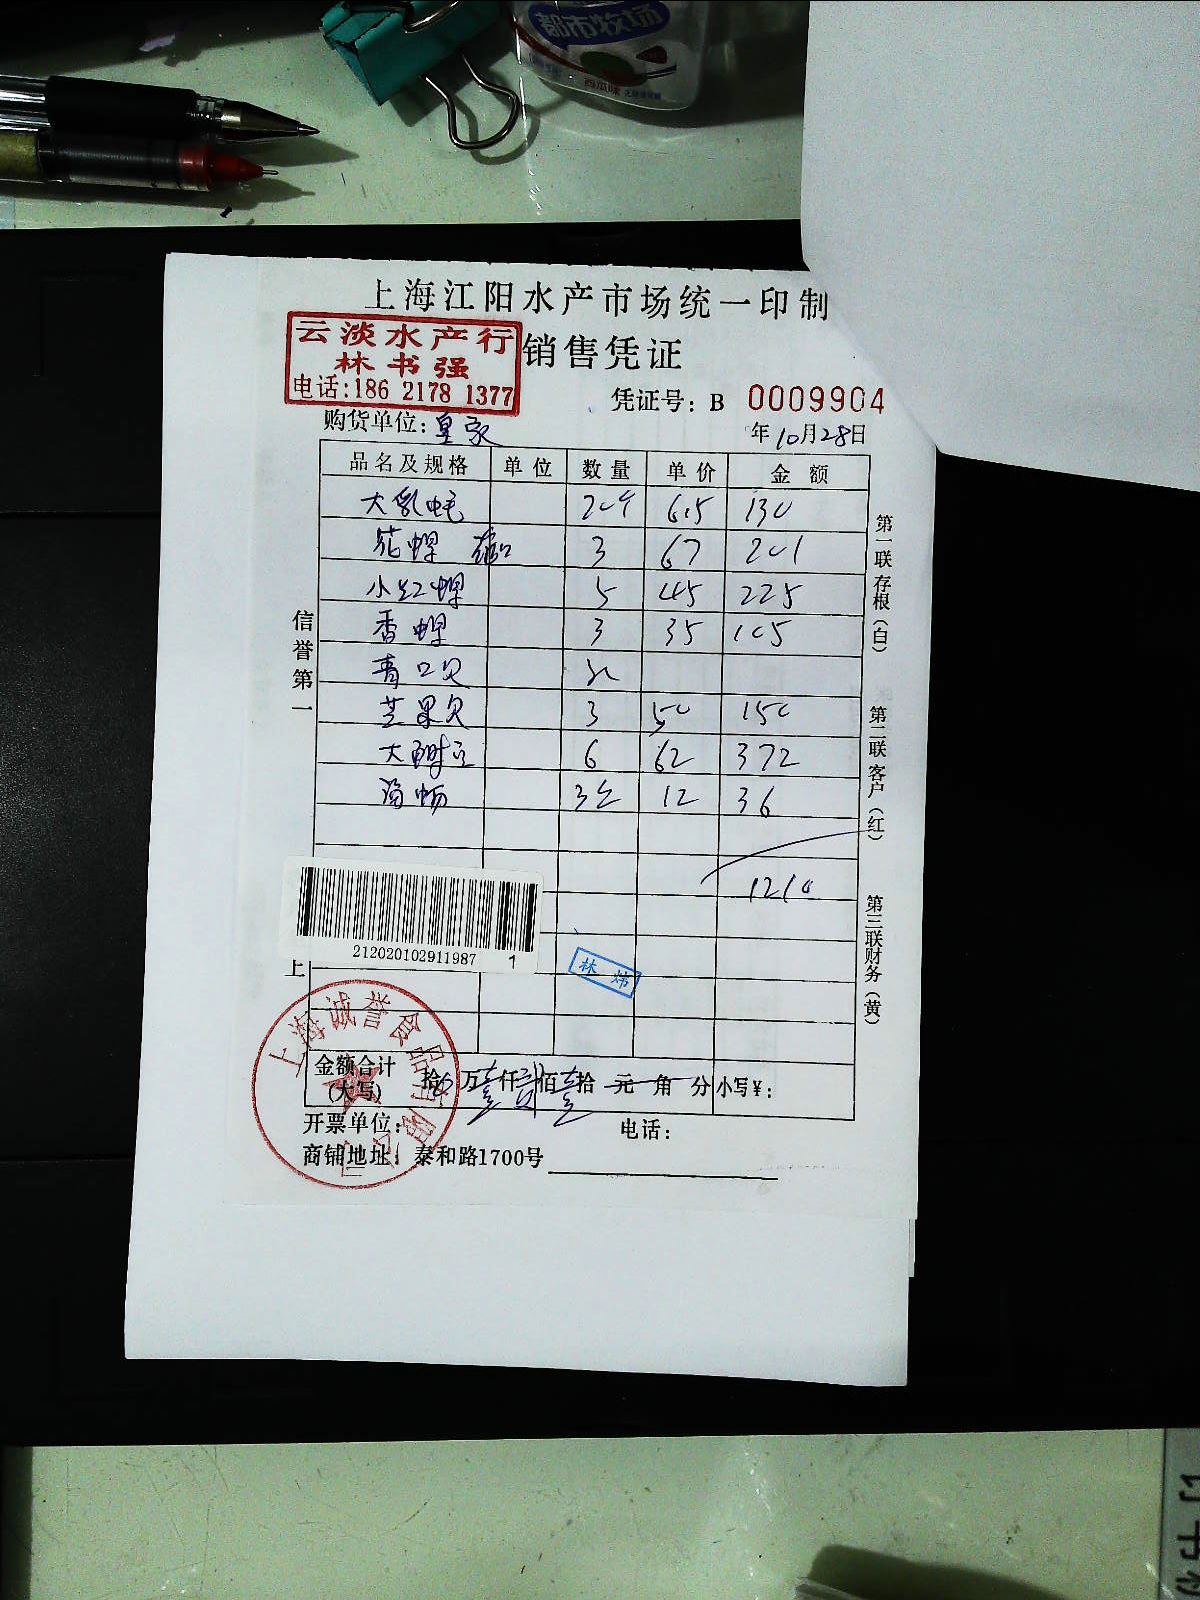 都市牧场
西瓜味
上海江阳水产市场统一印制
云淡水产行
林书强
电话:186 2178 1377
销售凭证
凭证号: B 0009904
购货单位:皇家
年10月28日
品名及规格 单位 数量 单价 金额
大乳 20个 6.5 130
花螺 3 67 201
小红螺 5 45 225
香螺 3 35 105
青口贝
芒果贝 3 50 150
大 6 62 372
3 12 36
1210
信誉第一
第一联存根(白)
第二联客户(红)
第三联财务(黄)
212020102911987 1
上
林炜
上海诚誉食品有限公司
金额合计(大写) 拾 万壹仟贰佰壹拾 元 角 分 小写¥:
开票单位: 电话:
商铺地址: 泰和路1700号
订书